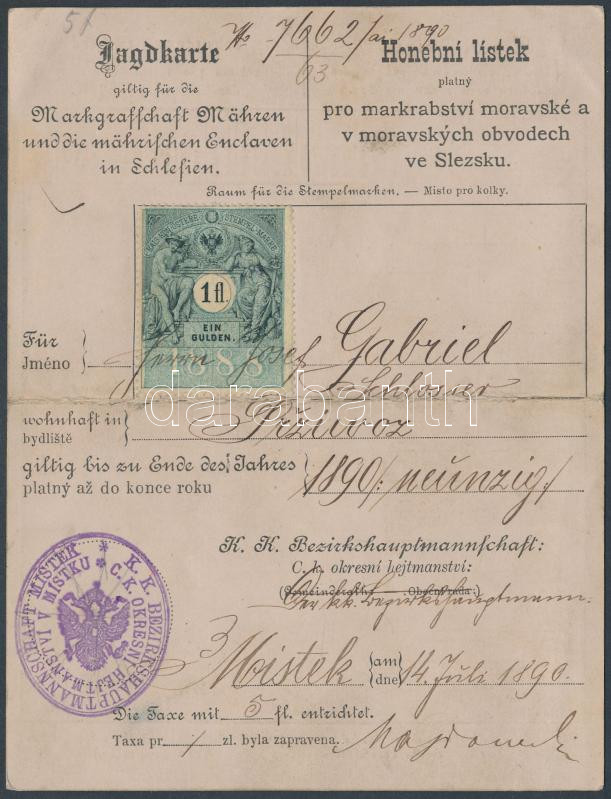 51
No 7662/ai 1890
63
Jagdkarte
giltig für die
Markgraffchaft Mähren
und die mährifchen Enclaven
in Schlefien.
Honební lístek
platný
pro markrabství moravské a
v moravských obvodech
ve Slezsku.
Raum für die Stempelmarken. — Místo pro kolky.
KAIS. KÖN. ÖSTERR. STEMPEL-MARKE
1 fl.
EIN
GULDEN.
1888
Für
Jméno
Herrn Josef Gabriel
Schlosser
darabanth
wohnhaft in
bydliště
Přzivoz
giltig bis zu Ende des Jahres
platný až do konce roku
1890/: neunzig/
K. K. Bezirkshauptmannschaft:
C. k. okresní hejtmanství:
(Gemeinderath: — Obecní rada:)
Der kk. Bezirkshauptmann:
Mistek
am
dne
14. Juli 1890.
Die Taxe mit 5 fl. entrichtet.
Taxa pr. / zl. byla zapravena.
K. K. BEZIRKSHAUPTMANNSCHAFT MISTEK
C. K. OKRESNÍ HEJTMANSTVÍ V MÍSTKU